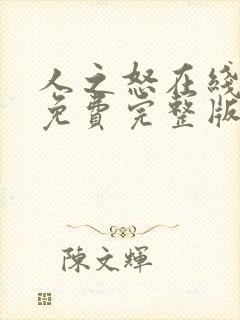 人之怒在綫
免費完整版
陳文輝